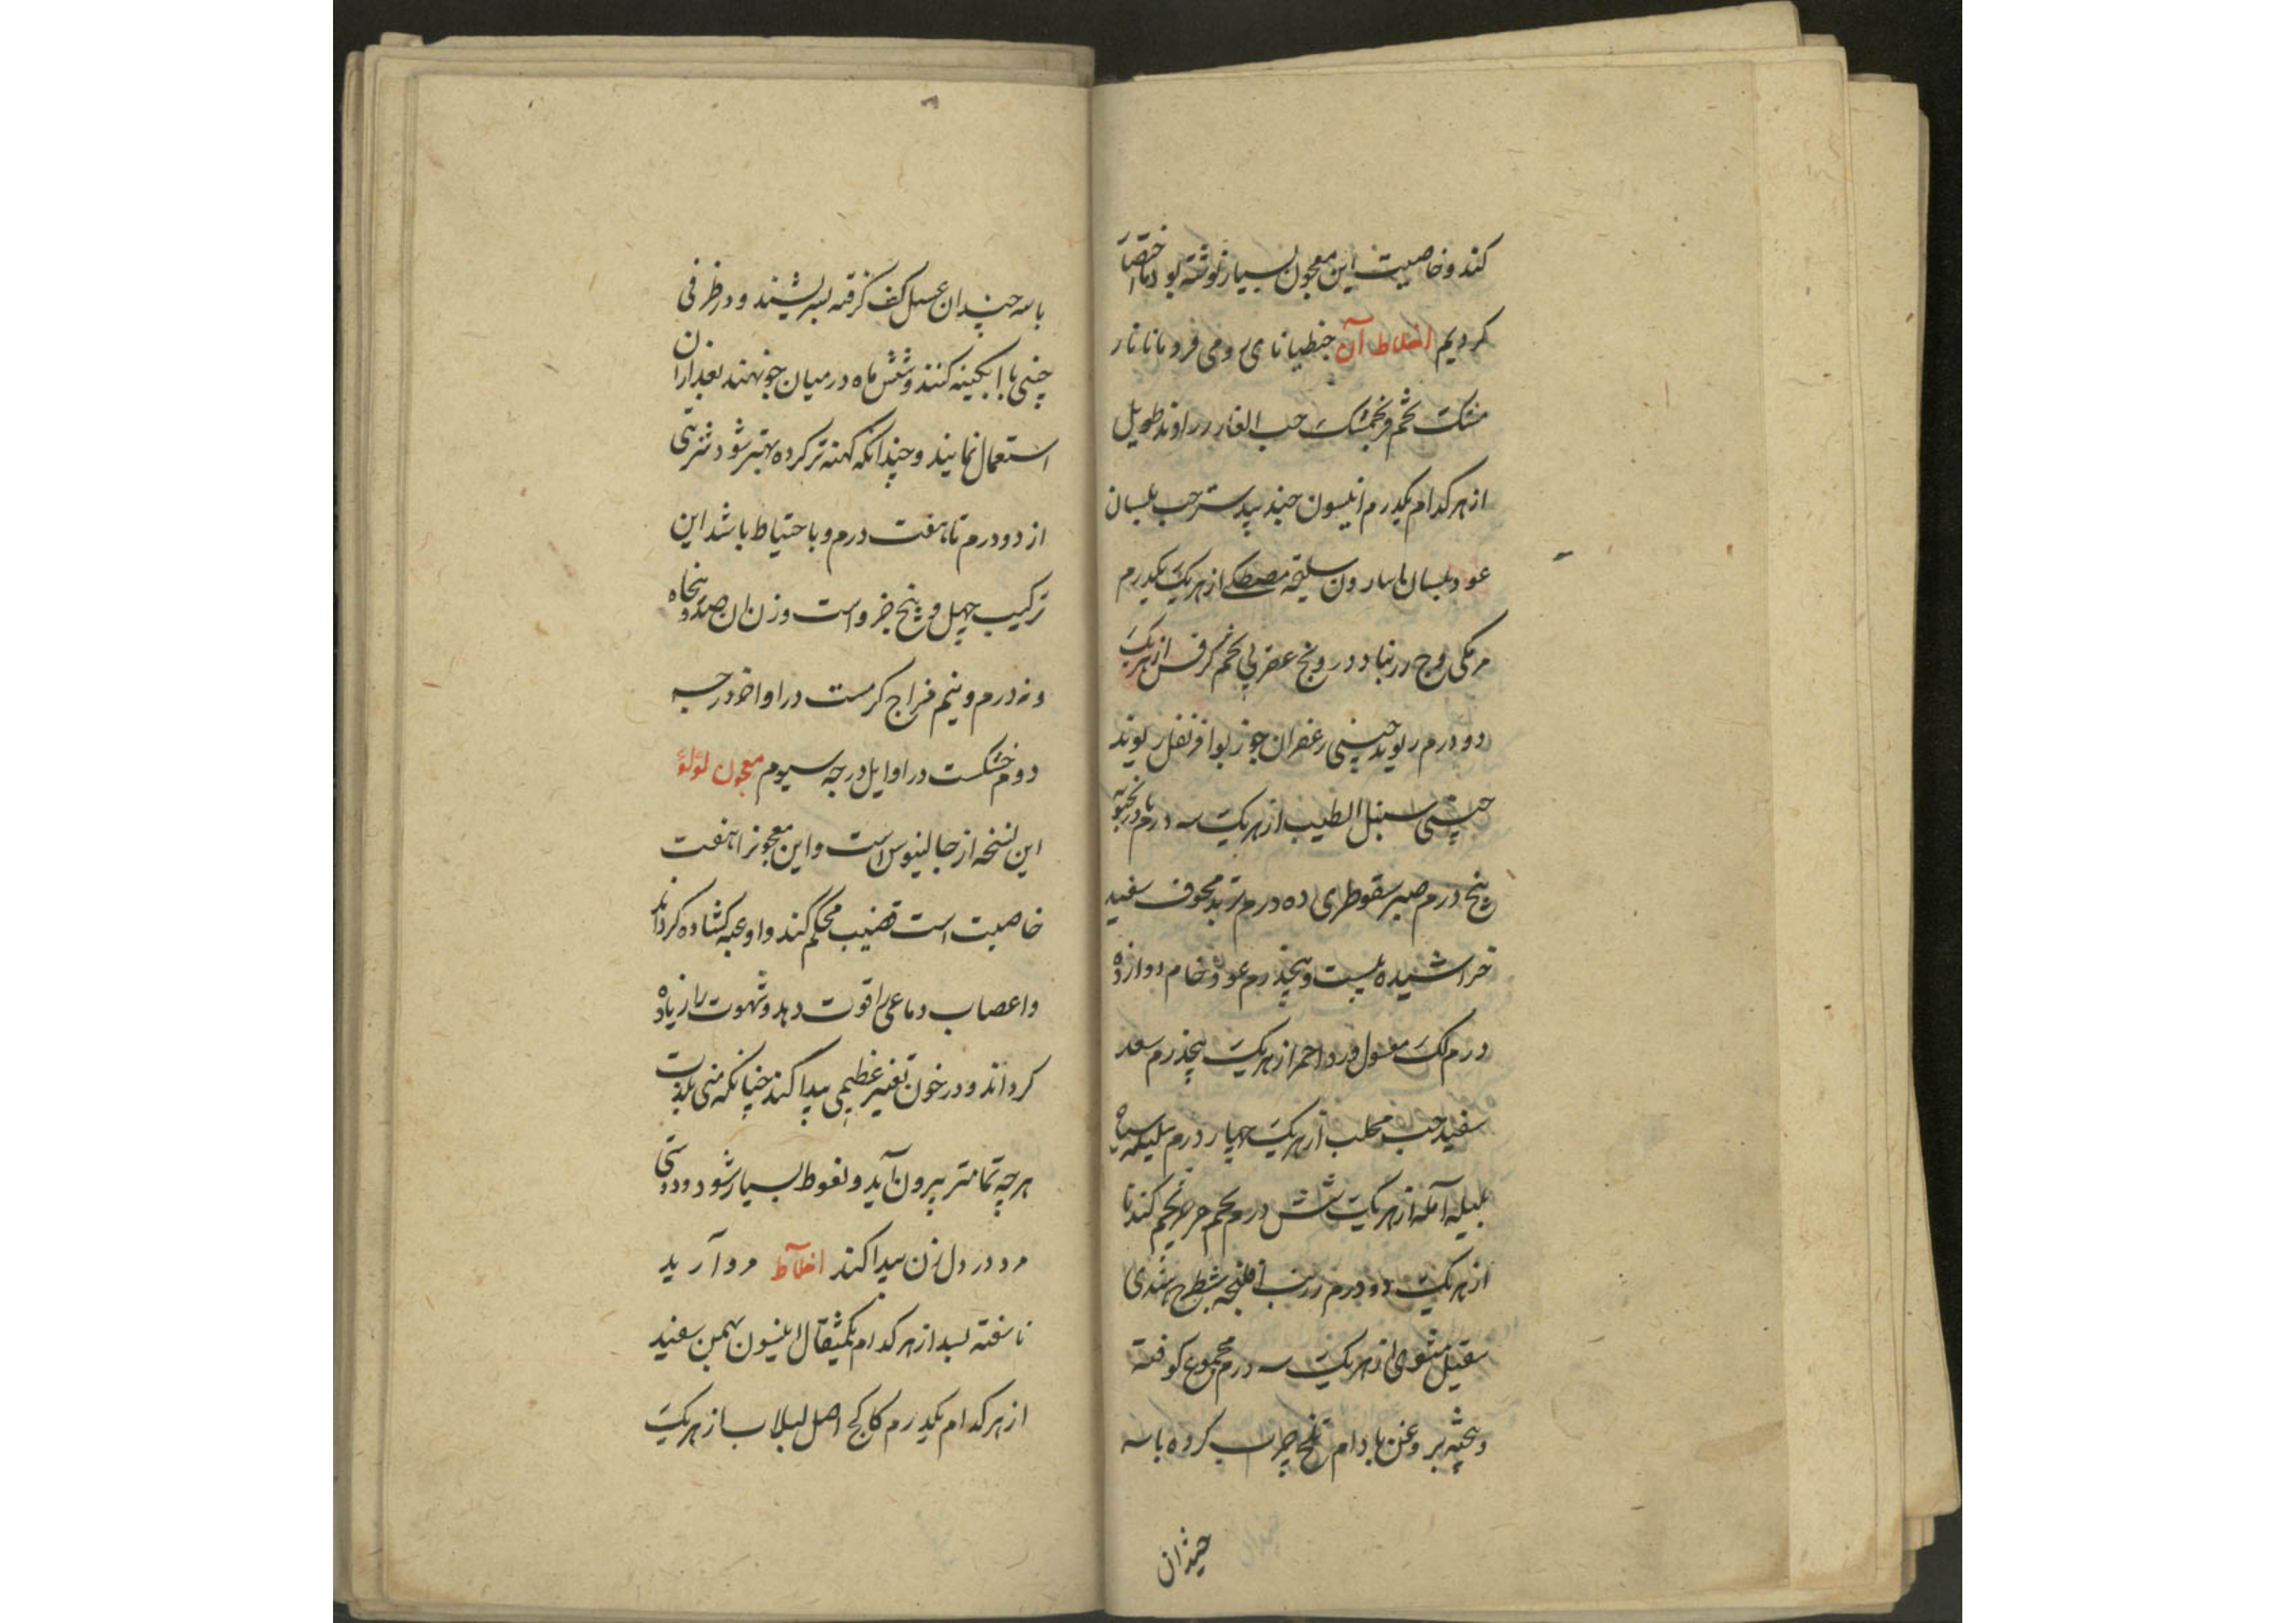 کند و خاصیت این معجون بسیار نوشته بود اما اختصار
کردیم اخلاط آن جنطیانای رومی فردمانا نار
مشک تخم فرنجمشک حب الغار زراوند طویل
از هر کدام یکدرم انیسون جند بیدستر حب بلسان
عود بلسان اسارون سلیخه مصطکی از هر یک یکدرم
مر مکی وج زرنباد درونج عقربی تخم کرفس از هر یک
دو درم ریوند چینی زعفران جوز بوا قرنفل ریوند
چینی سنبل الطیب از هر یک سه درم بادرنجبویه
پنج درم صبر سقوطری ده درم تربد مجوف سفید
خراشیده بیست و پنجدرم عود خام دوازده
درم لک مغسول ورد احمر از هر یک پنجدرم سعد
سفید حب محلب از هر یک چهار درم هلیله سیاه
بلیله آمله از هر یک شش درم تخم جرجیر تخم کندنا
از هر یک دو درم زرنب افلنجه شیطرج هندی
سقیل مشوی از هر یک سه درم مجموع کوفته
و بیخته بروغن بادام تلخ چرب کرده با سه
چندان
با سه چندان عسل کف کرفته بسریشند و در ظرفی
چینی یا ابکینه کنند و شش ماه در میان جو نهند بعد از ان
استعمال نمایند و چندانکه کهنه تر کرده بهتر شود شربتی
از دو درم تا هفت درم و با حتیاط باشد این
ترکیب چهل و پنج جزو است وزن ان صد و پنجاه
و نه درم و نیم مزاج کرمست در اواخر درجه
دوم خشکست در اوایل درجه سیوم معجون لؤلؤ
این نسخه از جالینوس است و این معجونرا هفت
خاصیت است قضیب محکم کند و اوعیه کشاده کرداند
و اعصاب دماغی را قوت دهد و شهوت را زیاده
کرداند و در خون تغییر عظیمی پیدا کند چنانکه منی بلذت
هر چه تمامتر بیرون آید و نعوط بسیار شود و دوستی
مرد در دل زن پیدا کند اخلاط مروآرید
ناسفته بسد از هر کدام یکمثقال انیسون بهمن سفید
از هر کدام یکدرم کاکنج اصل لبلاب از هر یک